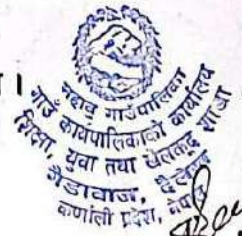 ।
महाबु गाउँपालिका
गाउँ कार्यपालिकाको कार्यालय
शिक्षा, युवा तथा खेलकुद शाखा
गैडावाज, दैलेख
कर्णाली प्रदेश, नेपाल